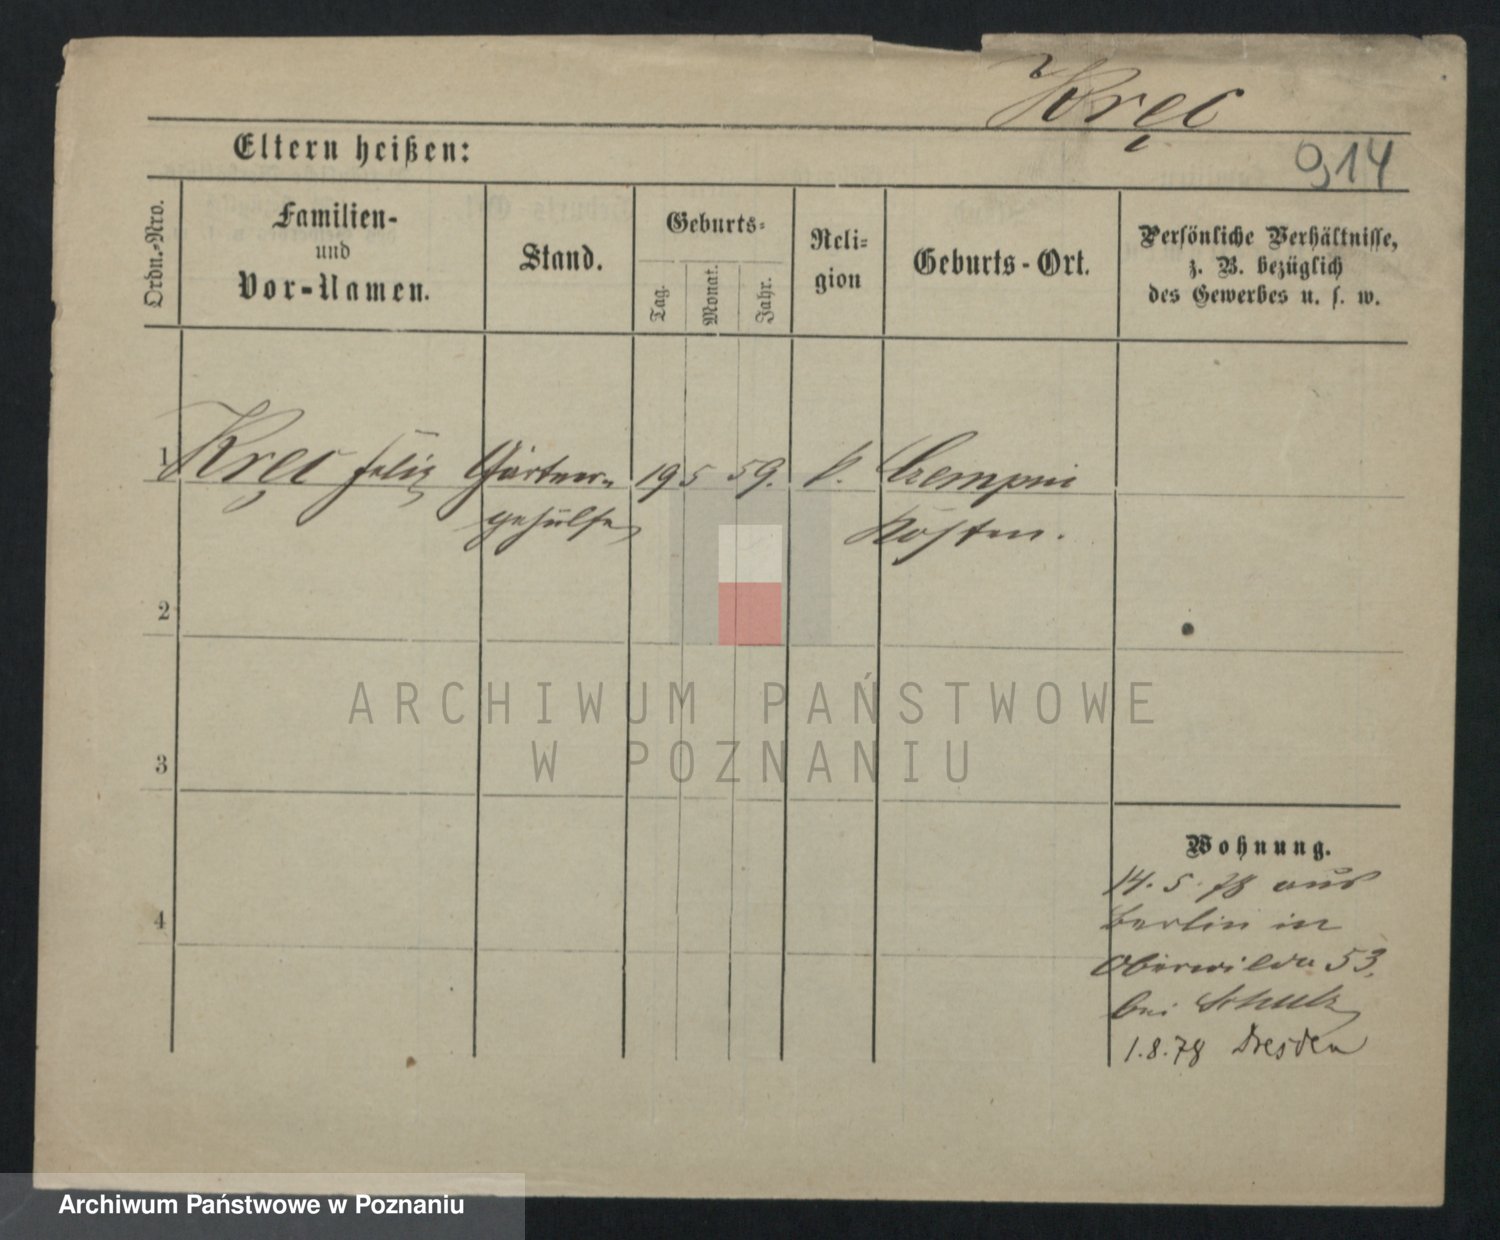 Kręc
914
Eltern heißen:
Ordn.-Nro.
Familien-
und
Vor-Namen.
Stand.
Geburts-
Tag.
Monat.
Jahr.
Reli-
gion
Geburts-Ort.
Persönliche Verhältnisse,
z. B. bezüglich
des Gewerbes u. s. w.
1 Kręc Felix Gärtner- 19 5 59. k. Czempin
gehülfe Kosten.
2
3
4
Wohnung.
14. 5. 78 aus
Berlin in
Oberwilda 53.
bei Schulz
1.8.78 Dresden
ARCHIWUM PAŃSTWOWE
W POZNANIU
Archiwum Państwowe w Poznaniu